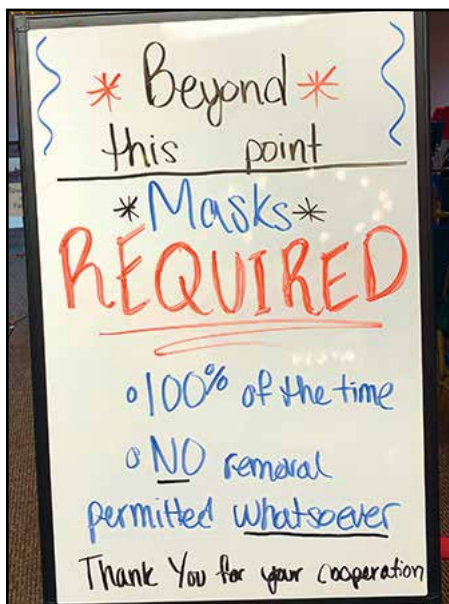 * Beyond *
this point
* Masks *
REQUIRED
o 100% of the time
o NO removal
permitted whatsoever
Thank You for your cooperation